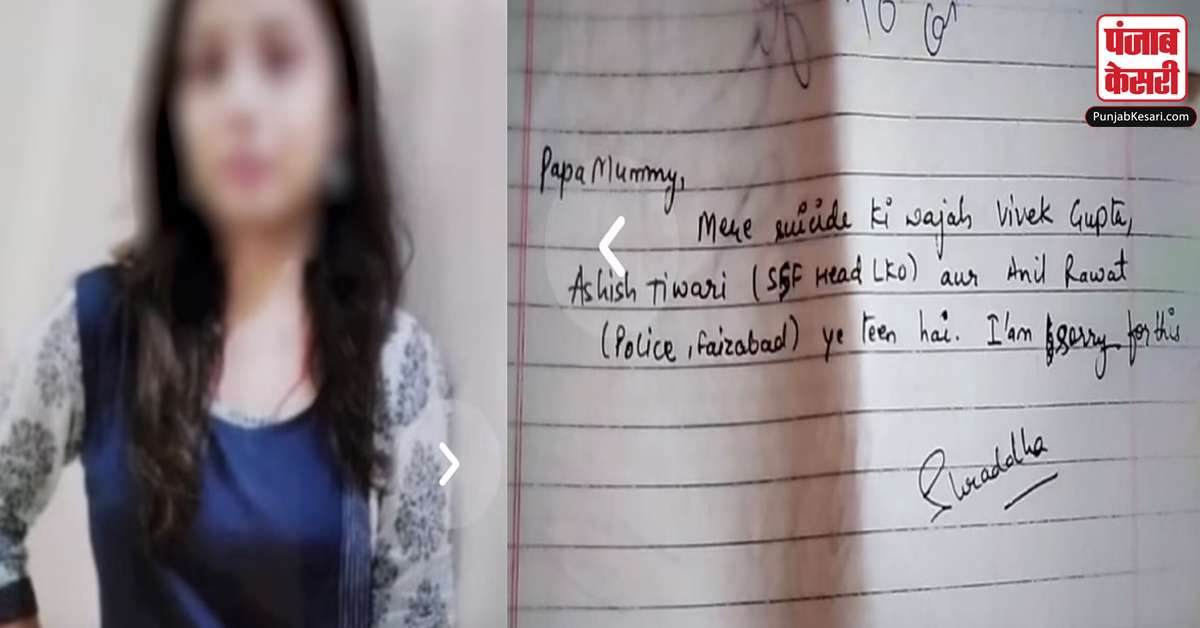 पंजाब
केसरी
PunjabKesari.com
Papa Mummy,
Mere suicide ki wajah Vivek Gupta,
Ashish Tiwari (SSF Head LKO) aur Anil Rawat
(Police, Faizabad) ye teen hai. I'am sorry for this
Shraddha